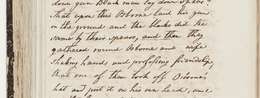 down gun Black men lay down spears
That upon this Osborne laid his gun
on the ground and the blacks did the
same by their spears, and then they
gathered round Osborne and wife
shaking hands and professing friendship
that one of them took off Osborne's
hat and put it on his own head, and